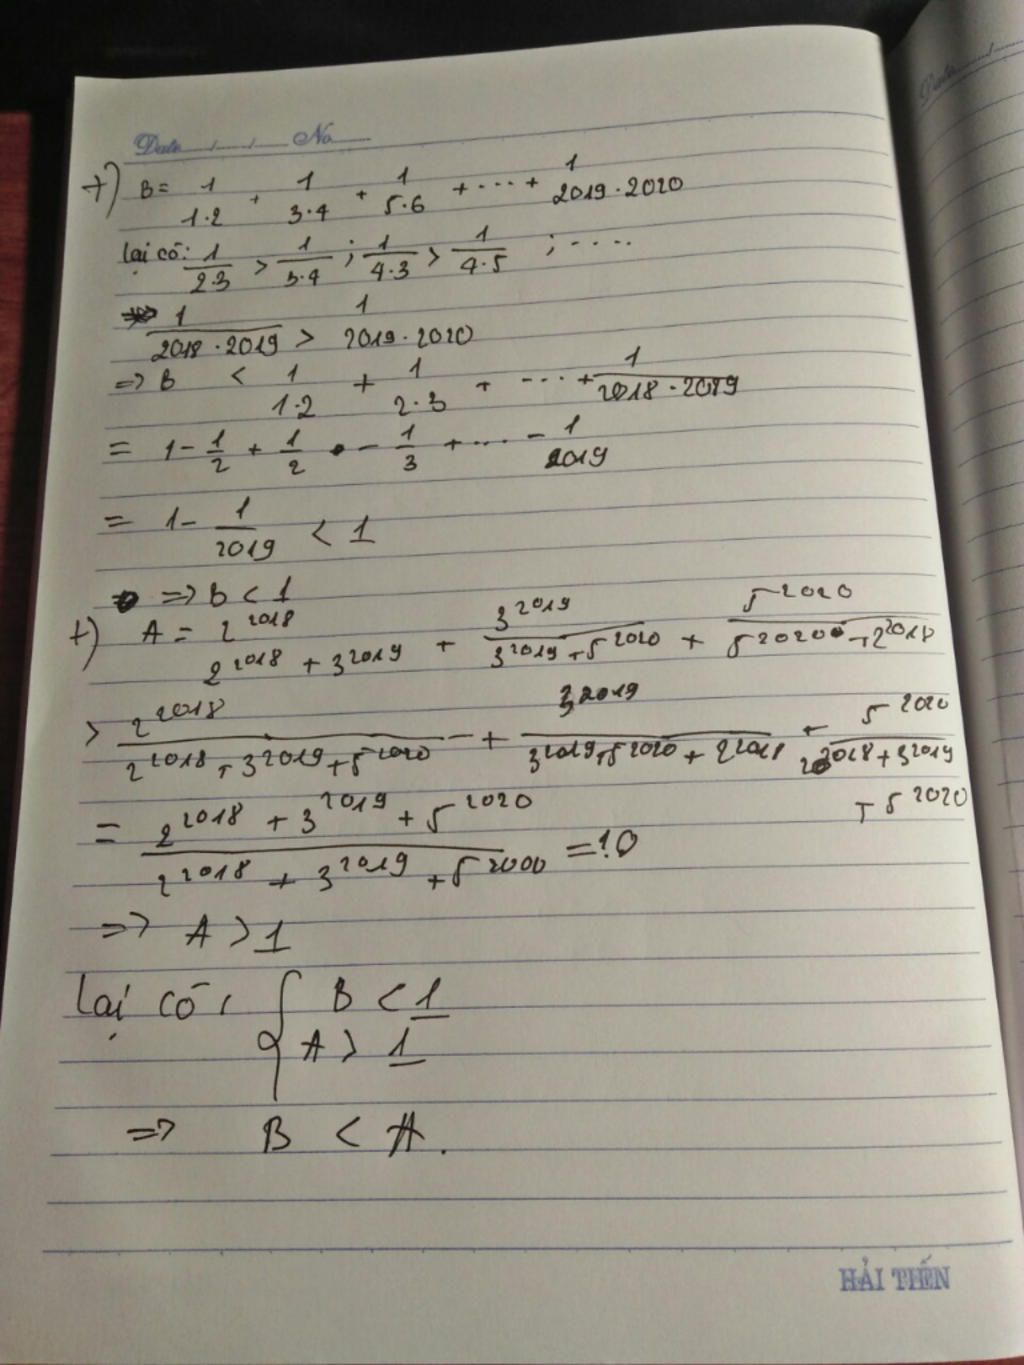 Date / / No
+) B = 1/1·2 + 1/3·4 + 1/5·6 + ... + 1/2019·2020
lại có: 1/2·3 > 1/3·4 ; 1/4·3 > 1/4·5 ; ....
1/2018·2019 > 1/2019·2020
=> B < 1/1·2 + 1/2·3 + ... + 1/2018·2019
= 1 - 1/2 + 1/2 - 1/3 + ... - 1/2019
= 1 - 1/2019 < 1
=> B < 1
+) A = 2^2018/2^2018 + 3^2019 + 3^2019/3^2019 + 5^2020 + 5^2020/5^2020 + 2^2018
> 2^2018/2^2018 + 3^2019 + 5^2020 + 3^2019/3^2019 + 5^2020 + 2^2018 + 5^2020/2^2018 + 3^2019
+ 5^2020
= 2^2018 + 3^2019 + 5^2020/2^2018 + 3^2019 + 5^2000 =
=> A > 1
lại có: { B < 1
A > 1
=> B < A.
HẢI TIẾN
Date / /